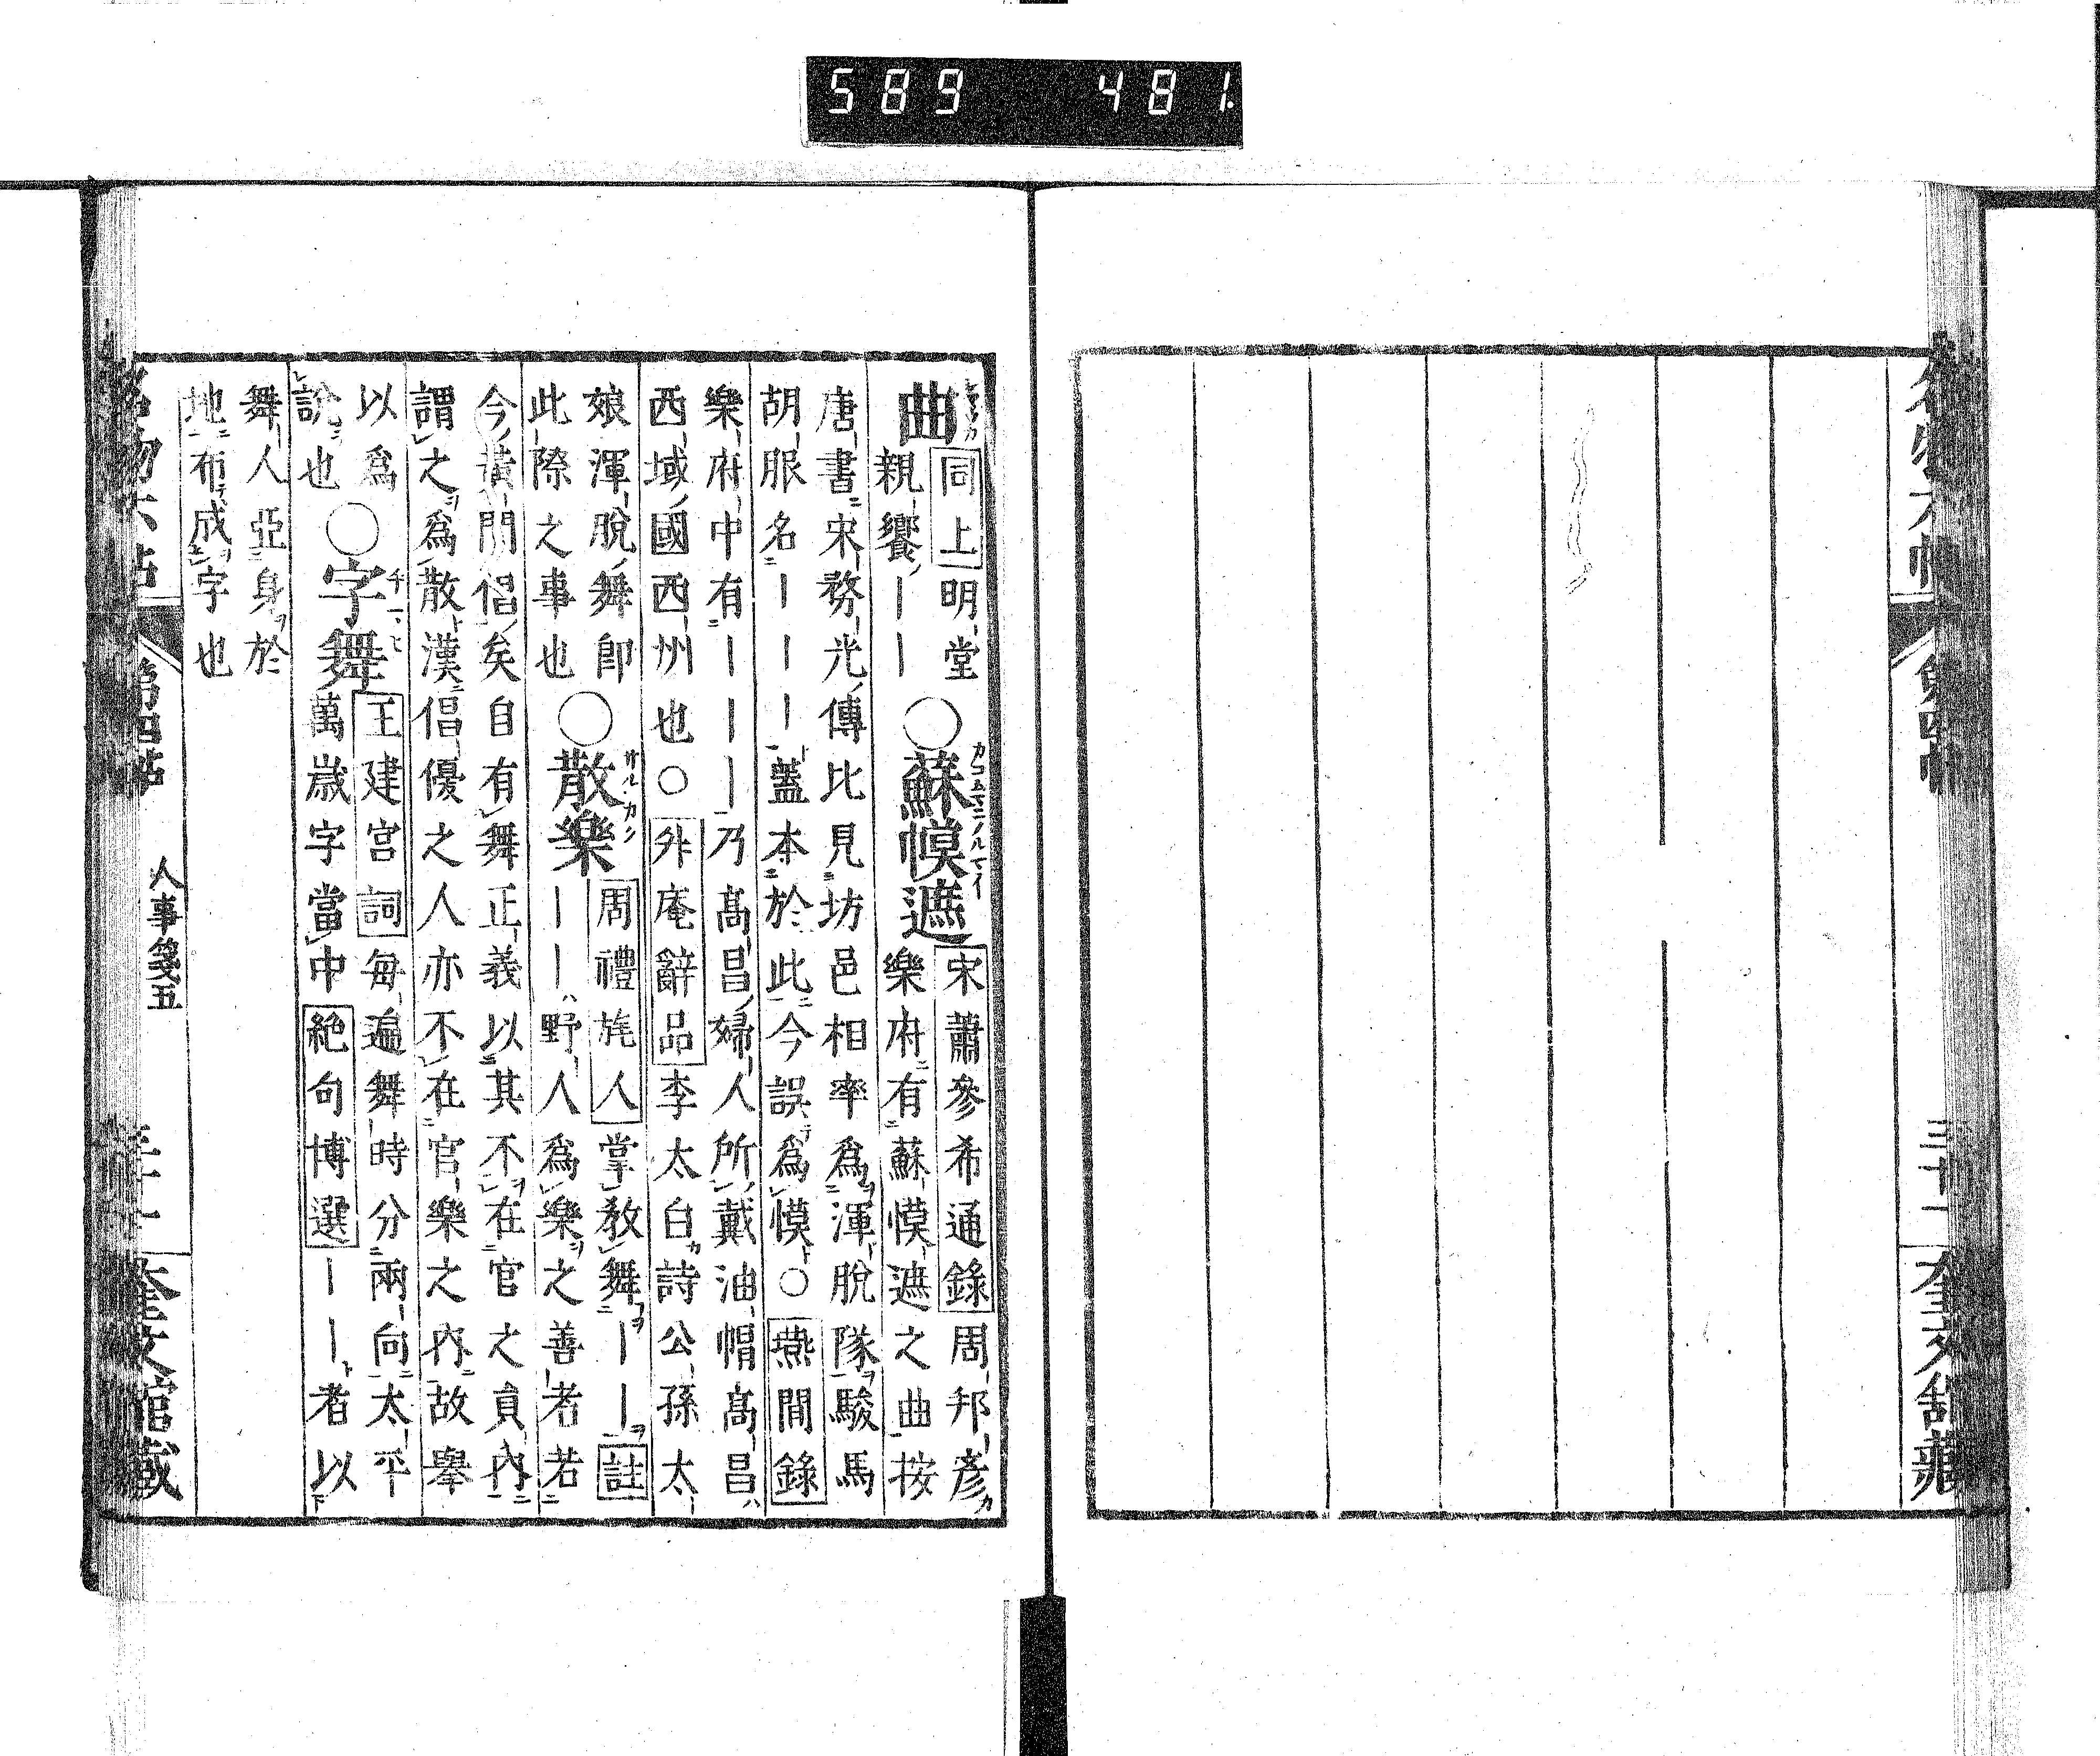 589 481.
第四帖
三十一
奎文館藏
曲
同上 明堂
親饗——
○蘇幙遮
宋蕭參希通錄 周邦彥
樂府有蘇幙遮之曲按
唐書宋務光傳比見坊邑相率爲渾脫隊駿馬
胡服名———蓋本於此今誤爲幙○燕閒錄
樂府中有———乃髙昌婦人所戴油帽髙昌
西域國西州也○升庵辭品李太白詩公孫太
娘渾脫舞卽
此際之事也
○散樂
周禮旄人掌敎舞——註
——野人爲樂之善者若
今黃門倡矣自有舞正義以其不在官之員內
謂之爲散漢倡優之人亦不在官樂之內故舉
以爲
說也
○字舞
王建宮詞每遍舞時分兩向太平
萬嵗字當中絕句博選——者以
舞人亞身於
地布成字也
名物六帖
第四帖
人事箋五
奎文館藏